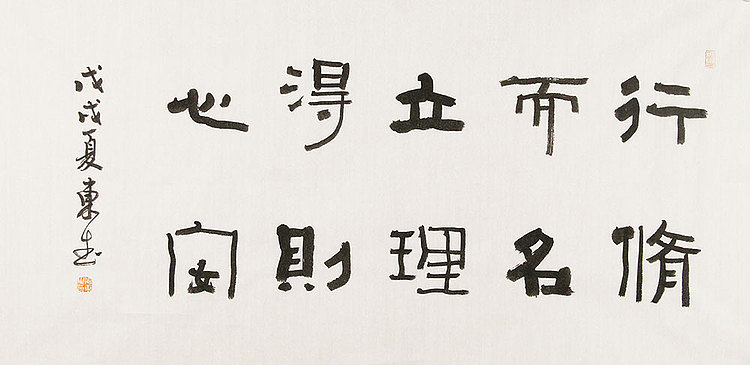 行脩
而名
立理
得則
心安
戊戌夏東書